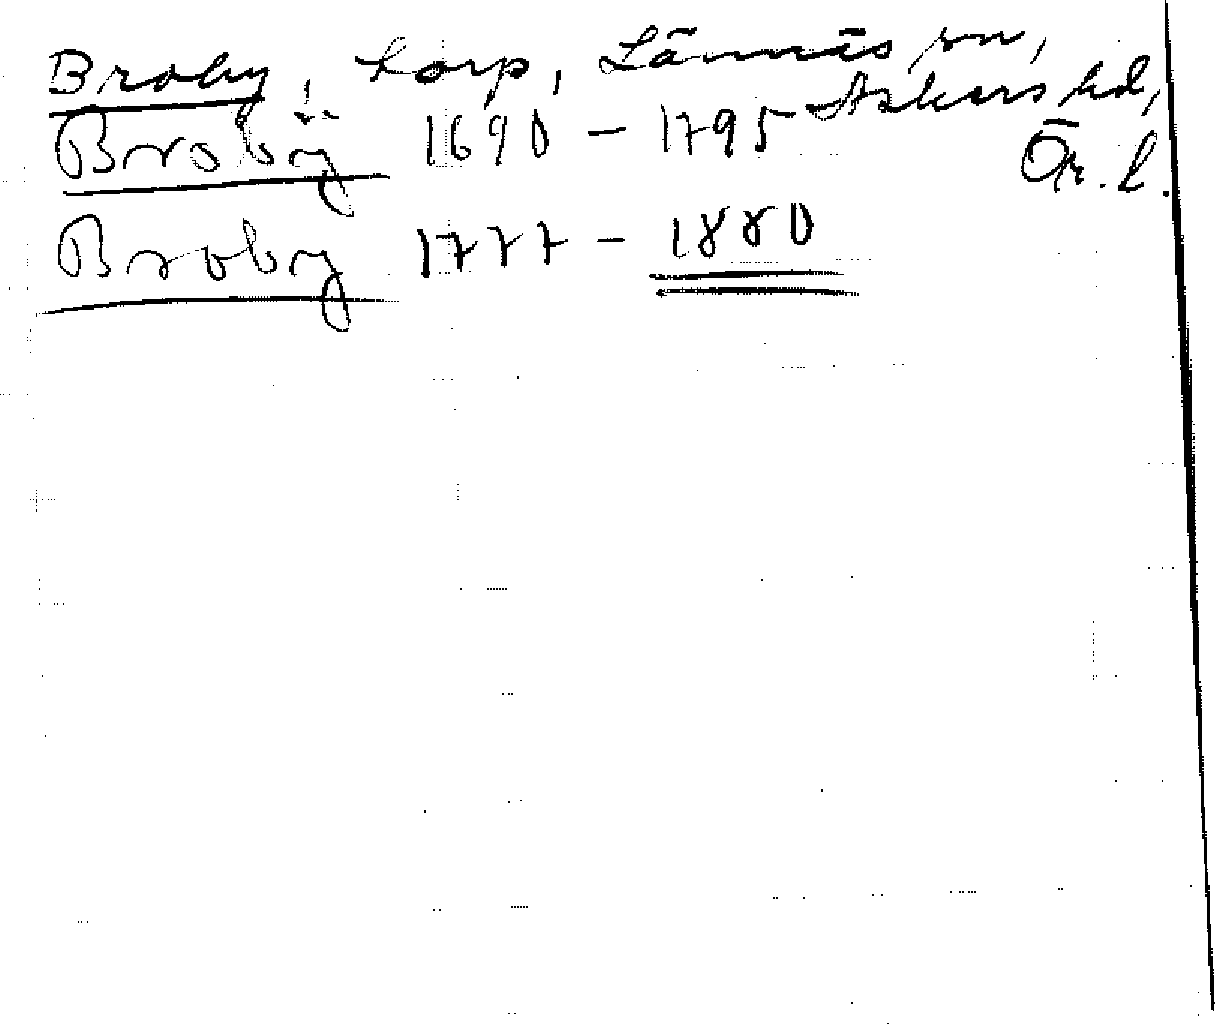 Broby, torp, Lännäs sn,
Askers hd,
Ör. l.
Brobÿ 1690 – 1795
Broby 1777 – 1880